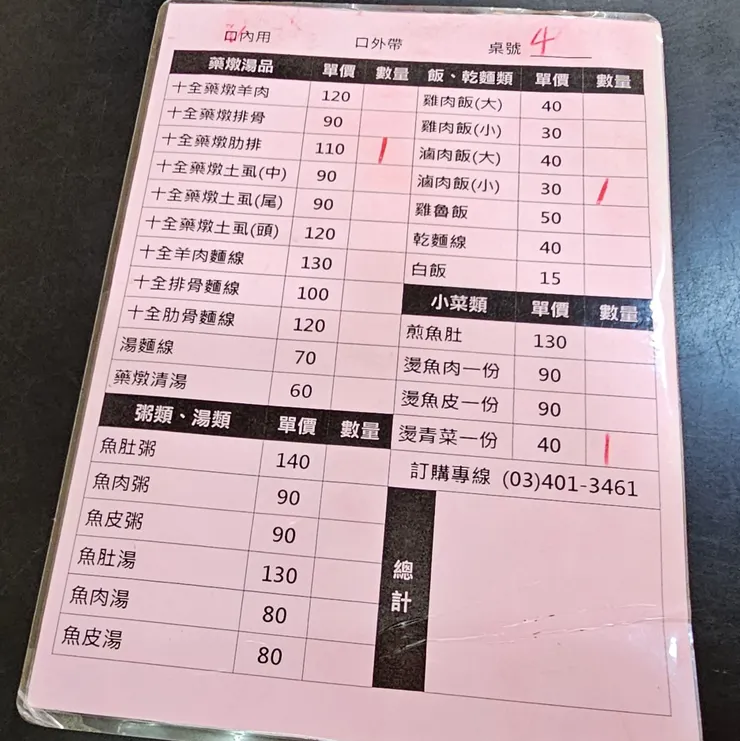 口內用 口外帶 桌號 4
藥燉湯品 單價 數量
十全藥燉羊肉 120
十全藥燉排骨 90
十全藥燉肋排 110 /
十全藥燉土虱(中) 90
十全藥燉土虱(尾) 90
十全藥燉土虱(頭) 120
十全羊肉麵線 130
十全排骨麵線 100
十全肋骨麵線 120
湯麵線 70
藥燉清湯 60
粥類、湯類 單價 數量
魚肚粥 140
魚肉粥 90
魚皮粥 90
魚肚湯 130
魚肉湯 80
魚皮湯 80
飯、乾麵類 單價 數量
雞肉飯(大) 40
雞肉飯(小) 30
滷肉飯(大) 40
滷肉飯(小) 30 /
雞魯飯 50
乾麵線 40
白飯 15
小菜類 單價 數量
煎魚肚 130
燙魚肉一份 90
燙魚皮一份 90
燙青菜一份 40 |
訂購專線 (03)401-3461
總計